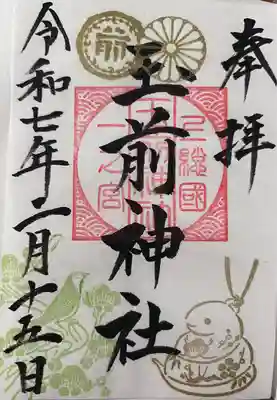 奉拝
上總國
玉前神社
一之宮
前
令和七年二月十五日